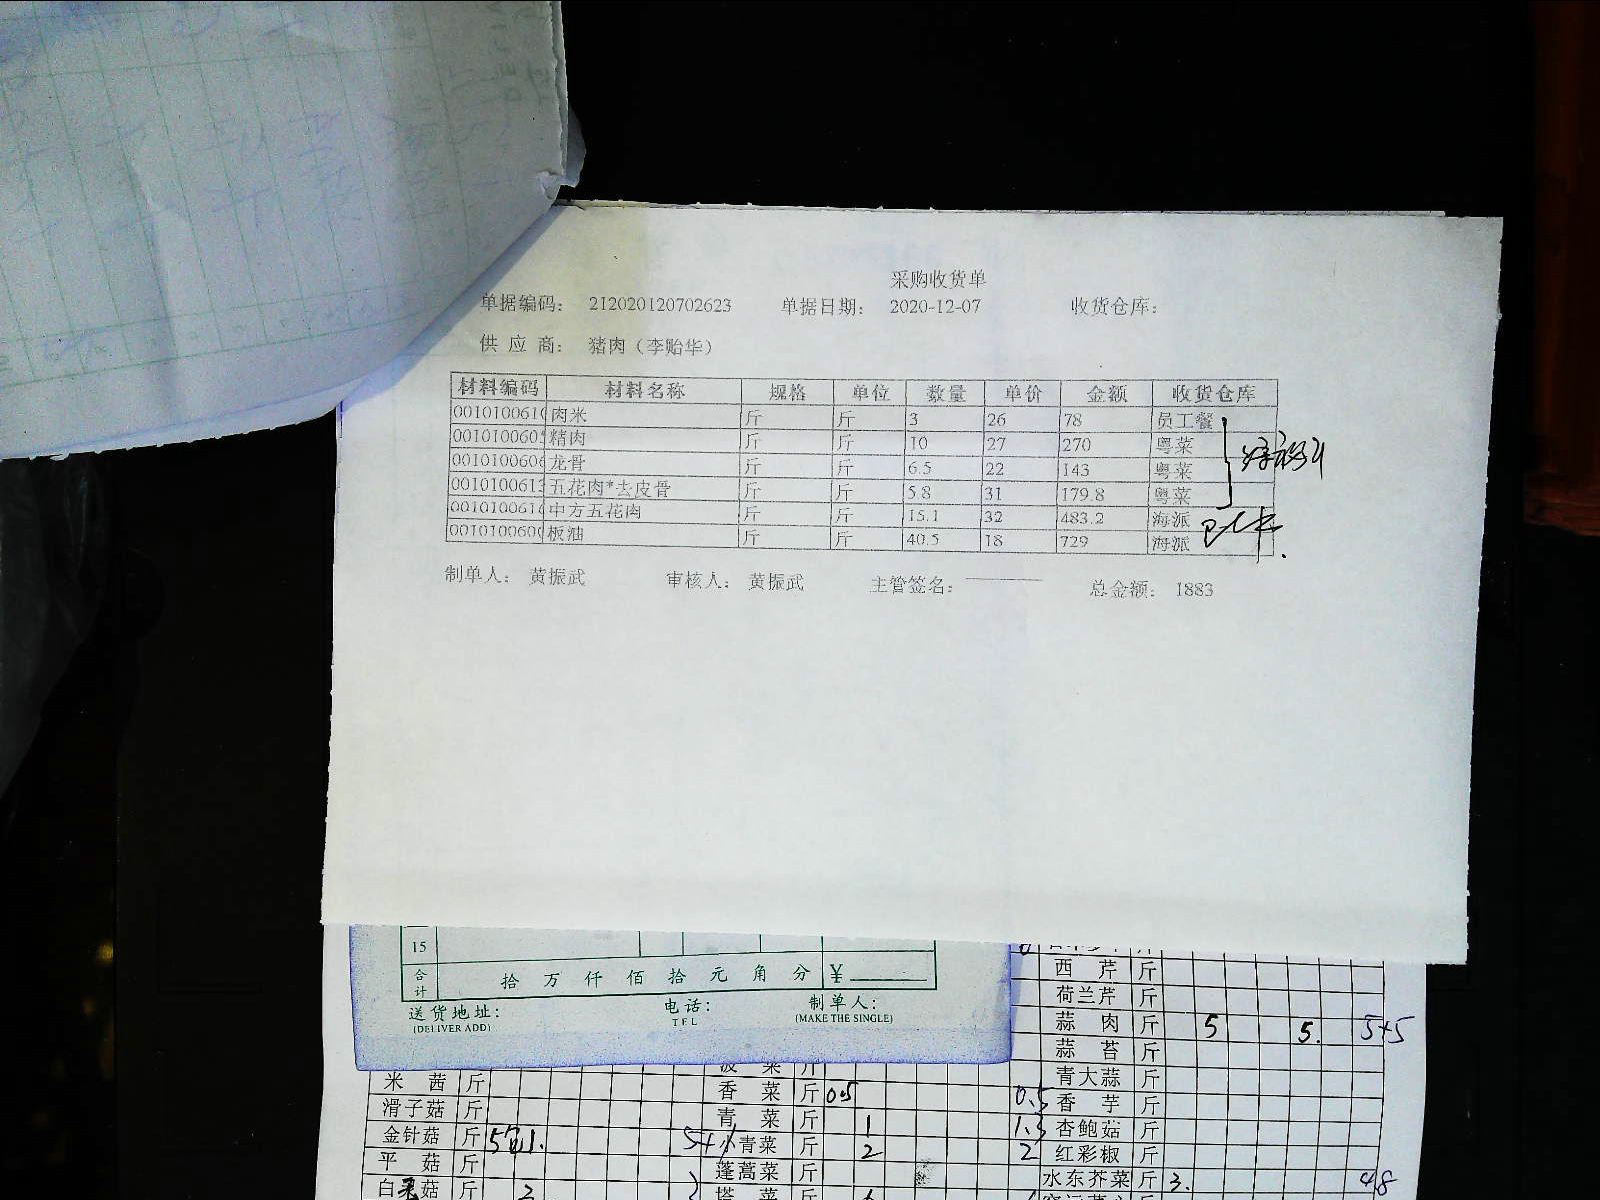 采购收货单
单据编码： 212020120702623 单据日期： 2020-12-07 收货仓库：
供 应 商： 猪肉（李贻华）
材料编码 材料名称 规格 单位 数量 单价 金额 收货仓库
001010061 肉米 斤 斤 3 26 78 员工餐
001010060 精肉 斤 斤 10 27 270 粤菜
001010060 龙骨 斤 斤 6.5 22 143 粤菜
001010061 五花肉*去皮骨 斤 斤 5.8 31 179.8 粤菜
001010061 中方五花肉 斤 斤 15.1 32 483.2 海派
001010060 板油 斤 斤 40.5 18 729 海派
制单人： 黄振武 审核人： 黄振武 主管签名： 总金额： 1883
15
合计 拾 万 仟 佰 拾 元 角 分 ¥
送货地址： 电话： 制单人：
(DELIVER ADD) TEL (MAKE THE SINGLE)
西 芹 斤
荷兰芹 斤
蒜 肉 斤 5 5. 5+5
蒜 苔 斤
青大蒜 斤
米 茜 斤 香 菜 斤 0.5 0.5 香 芋 斤
滑子菇 斤 青 菜 斤 1 1.5 杏鲍菇 斤
金针菇 斤 小青菜 斤 2 2 红彩椒 斤
平 菇 斤 蓬蒿菜 斤 水东芥菜 斤 3. 48
菇 斤 2 菜 斤